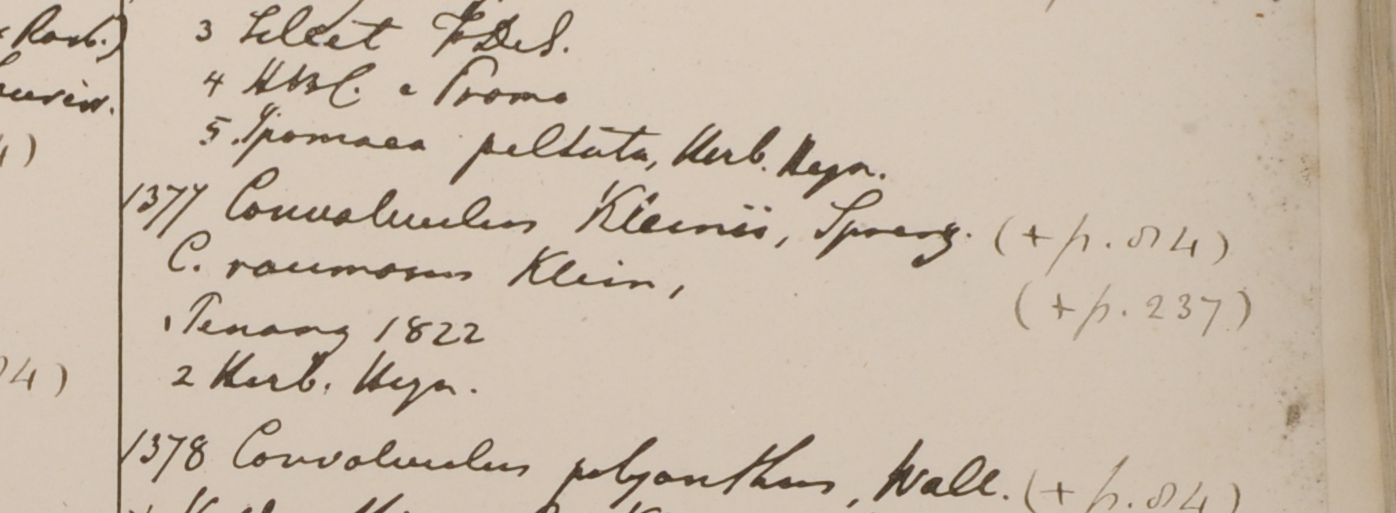 Roxb.)
3 Silhet F.D.S.
4 HBC. e Prome
5. Ipomaea peltata, Herb. Heyn.
1377 Convolvulus Kleinii, Spreng. (+ p. 84)
C. racemosus Klein,
(+ p. 237)
1 Penang 1822
2 Herb. Heyn.
84)
1378 Convolvulus polyanthus, Wall. (+ p. 84)